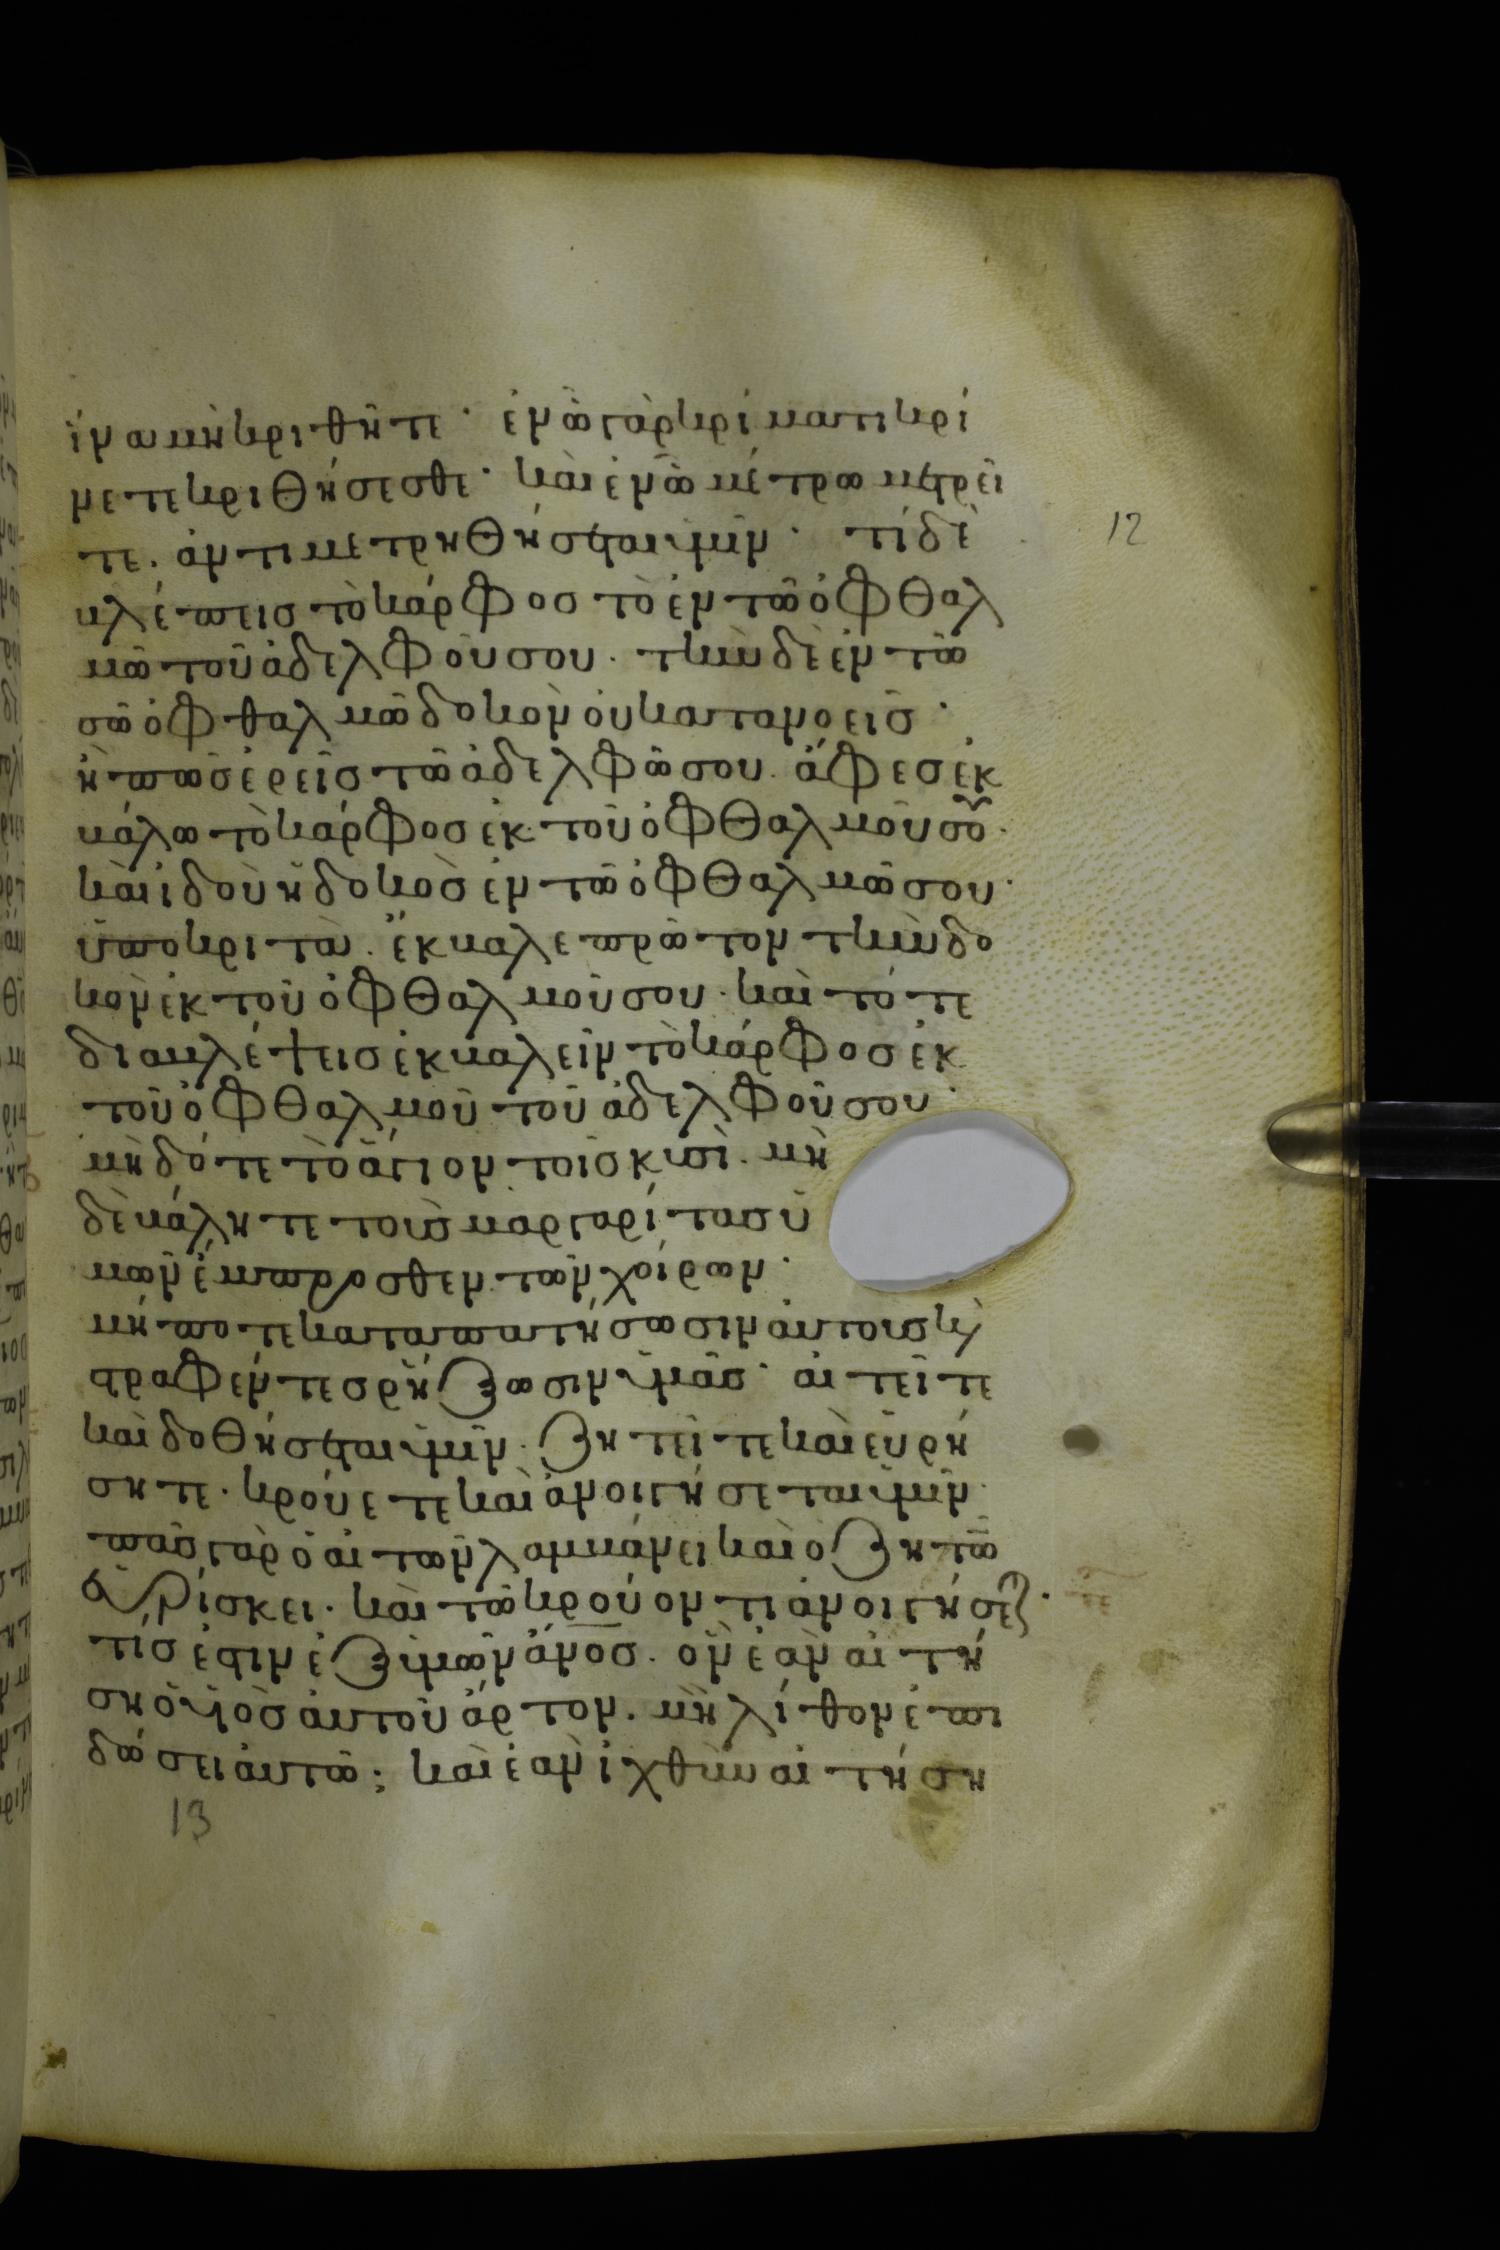 ἵνα μὴ κριθῆτε· ἐν ὧ γὰρ κρίματι κρί
νετε κριθήσεσθε· καὶ ἐν ὧ μέτρω μετρεῖ
τε. ἀντιμετρηθήσεται ὑμῖν· τί δὲ
12
βλέπεις τὸ κάρφος τὸ ἐν τῶ ὀφθαλ
μῶ τοῦ ἀδελφοῦ σου. τὴν δὲ ἐν τῶ
σῶ ὀφθαλμῶ δοκὸν οὐ κατανοεῖς·
ἢ πῶς ἐρεῖς τῶ ἀδελφῶ σου. ἄφες ἐκ
βάλω τὸ κάρφος ἐκ τοῦ ὀφθαλμοῦ σου·
καὶ ἰδοὺ ἡ δοκὸς ἐν τῶ ὀφθαλμῶ σου·
ὑποκριτὰ. ἔκβαλε πρῶτον τὴν δο
κὸν ἐκ τοῦ ὀφθαλμοῦ σου. καὶ τότε
διαβλέψεις ἐκβαλεῖν τὸ κάρφος ἐκ
τοῦ ὀφθαλμοῦ τοῦ ἀδελφοῦ σου·
μὴ δότε τὸ ἅγιον τοῖς κυσὶ. μὴ
δὲ βάλητε τοὺς μαργαρίτας ὑ
μῶν ἔμπροσθεν τῶν χοίρων·
μήποτε καταπατήσωσιν αὐτοὺς κὲ
στραφέντες ῥήξωσιν ὑμᾶς· αἰτεῖτε
καὶ δοθήσεται ὑμῖν. ζητεῖτε καὶ εὑρή
σητε. κρούετε καὶ ἀνοιγήσεται ὑμῖν·
πᾶς γὰρ ὁ αἰτῶν λαμβάνει καὶ ὁ ζητῶν
εὑρίσκει. καὶ τῶ κρούοντι ἀνοιγήσεται·
τίς ἐστιν ἐξ ὑμῶν ἄνος. ὃν ἐὰν αἰτή
ση ὁ υἱὸς αὐτοῦ ἄρτον. μὴ λίθον ἐπι
δώσει αὐτῶ; καὶ ἐὰν ἰχθὺν αἰτήση
13